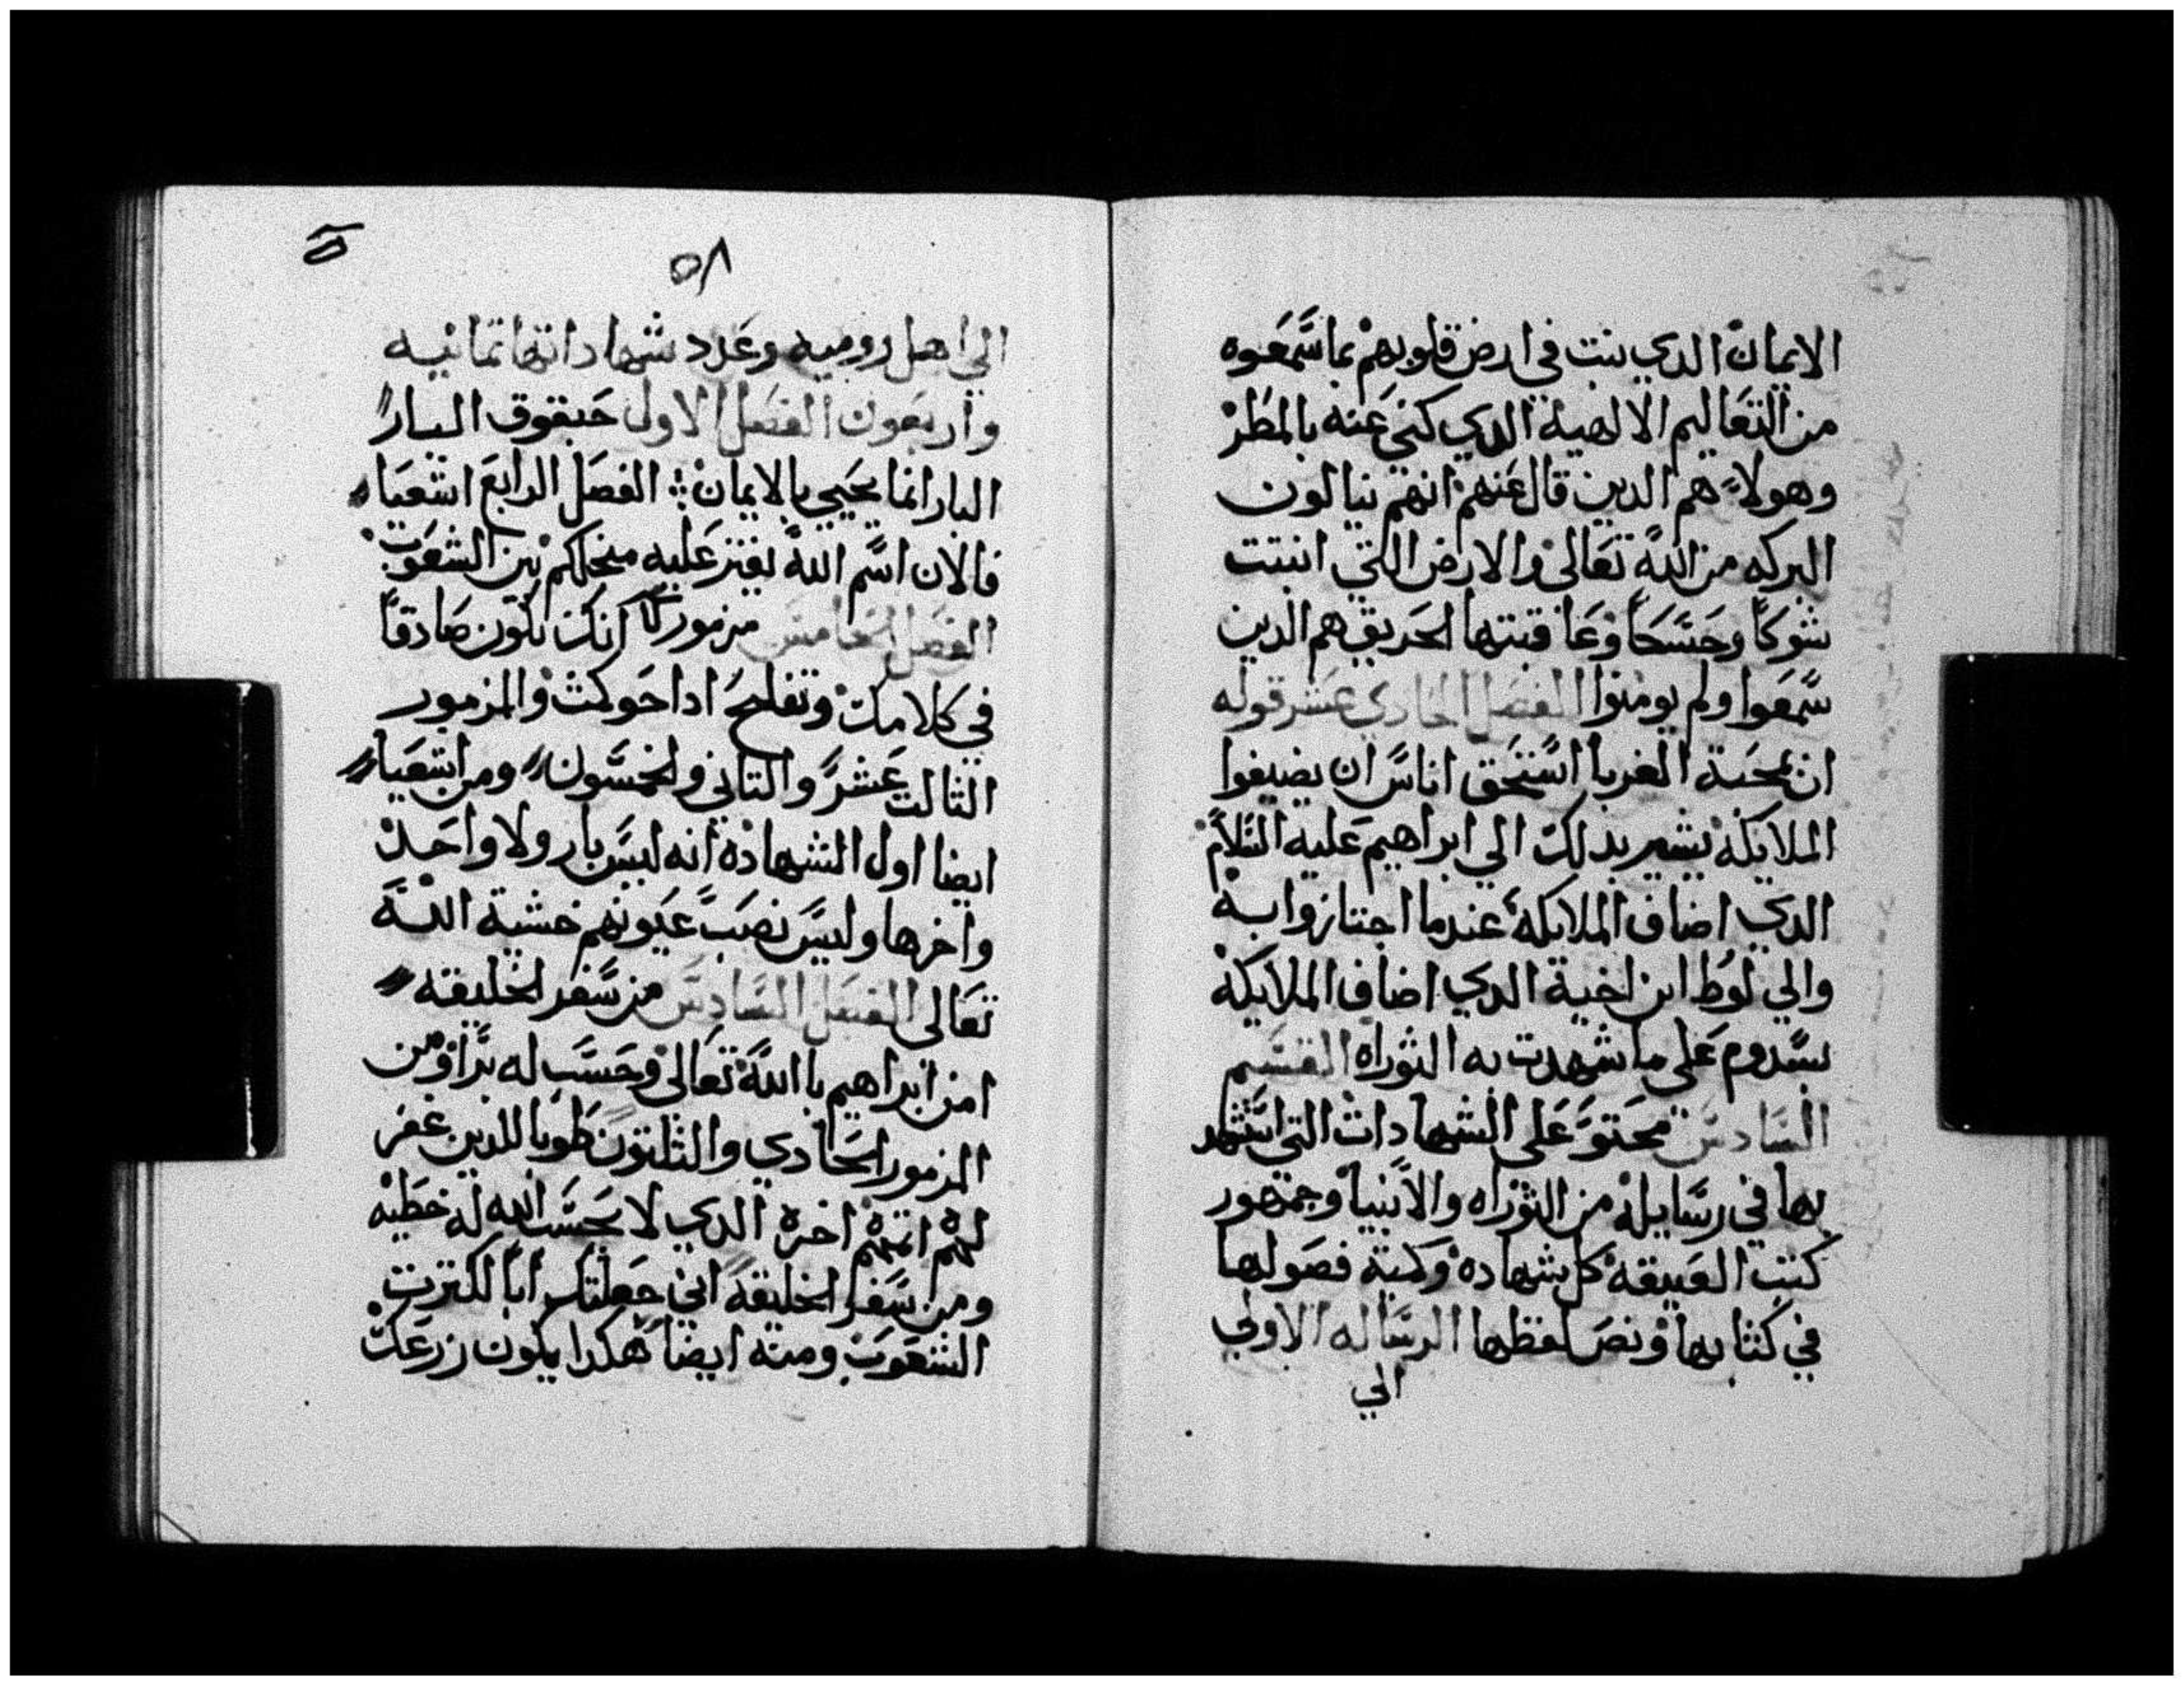 الايمان الدي ينبت في ارض قلوبهم بما سمعوه
من التعاليم الالهية الدي كني عنه بالمطر
وهولاء هم الدين قال عنهم انهم ينالون
البركه من الله تعالي والارض التي انبتت
شوكا وحسكا وعاقبتها الحريق هم الدين
سمعوا ولم يومنوا الفصل الحادي عشر قوله
ان بمحبة الغربا استحق اناس ان يضيفوا
الملايكة يشير بدلك الي ابراهيم عليه السلام
الدي اضاف الملايكة عندما اجتازوا به
والي لوط ابن اخية الدي اضاف الملايكة
بسدوم علي ما شهدت به التوراه القسم
السادس محتو علي الشهادات التي استشهد
بها في رسايله من التوراه والانبيا وجمهور
كتب العتيقة كل شهاده وكمية فصولها
في كتابها ونص لفظها الرساله الاولي
الي
٥٨
الي اهل روميه وعدد شهاداتها تمانيه
واربعون الفصل الاول حبقوق البار
البار انما يحيي بالايمان الفصل الرابع اشعيا
فالان اسم الله يفتر عليه منجلكم بين الشعوب
الفصل الخامس مزمور انك تكون صادقا
في كلامك وتفلح ادا حوكمت والمزمور
التالت عشر والتاني والخمسون ومن اشعيا
ايضا اول الشهادة انه ليس بار ولا واحد
واخرها وليس نصب عيونهم خشية الله
تعالي الفصل السادس من سفر الخليقه
امن ابراهيم بالله تعالي وحسب له برا ومن
المزمور الحادي والتلتون طوبا للدين غفر
لهم اتمهم اخره الدي لا يحسب الله له خطيه
ومن سفر الخليقة اني جعلتك ابا لكترت
الشعوب ومنه ايضا هكدا يكون زرعك